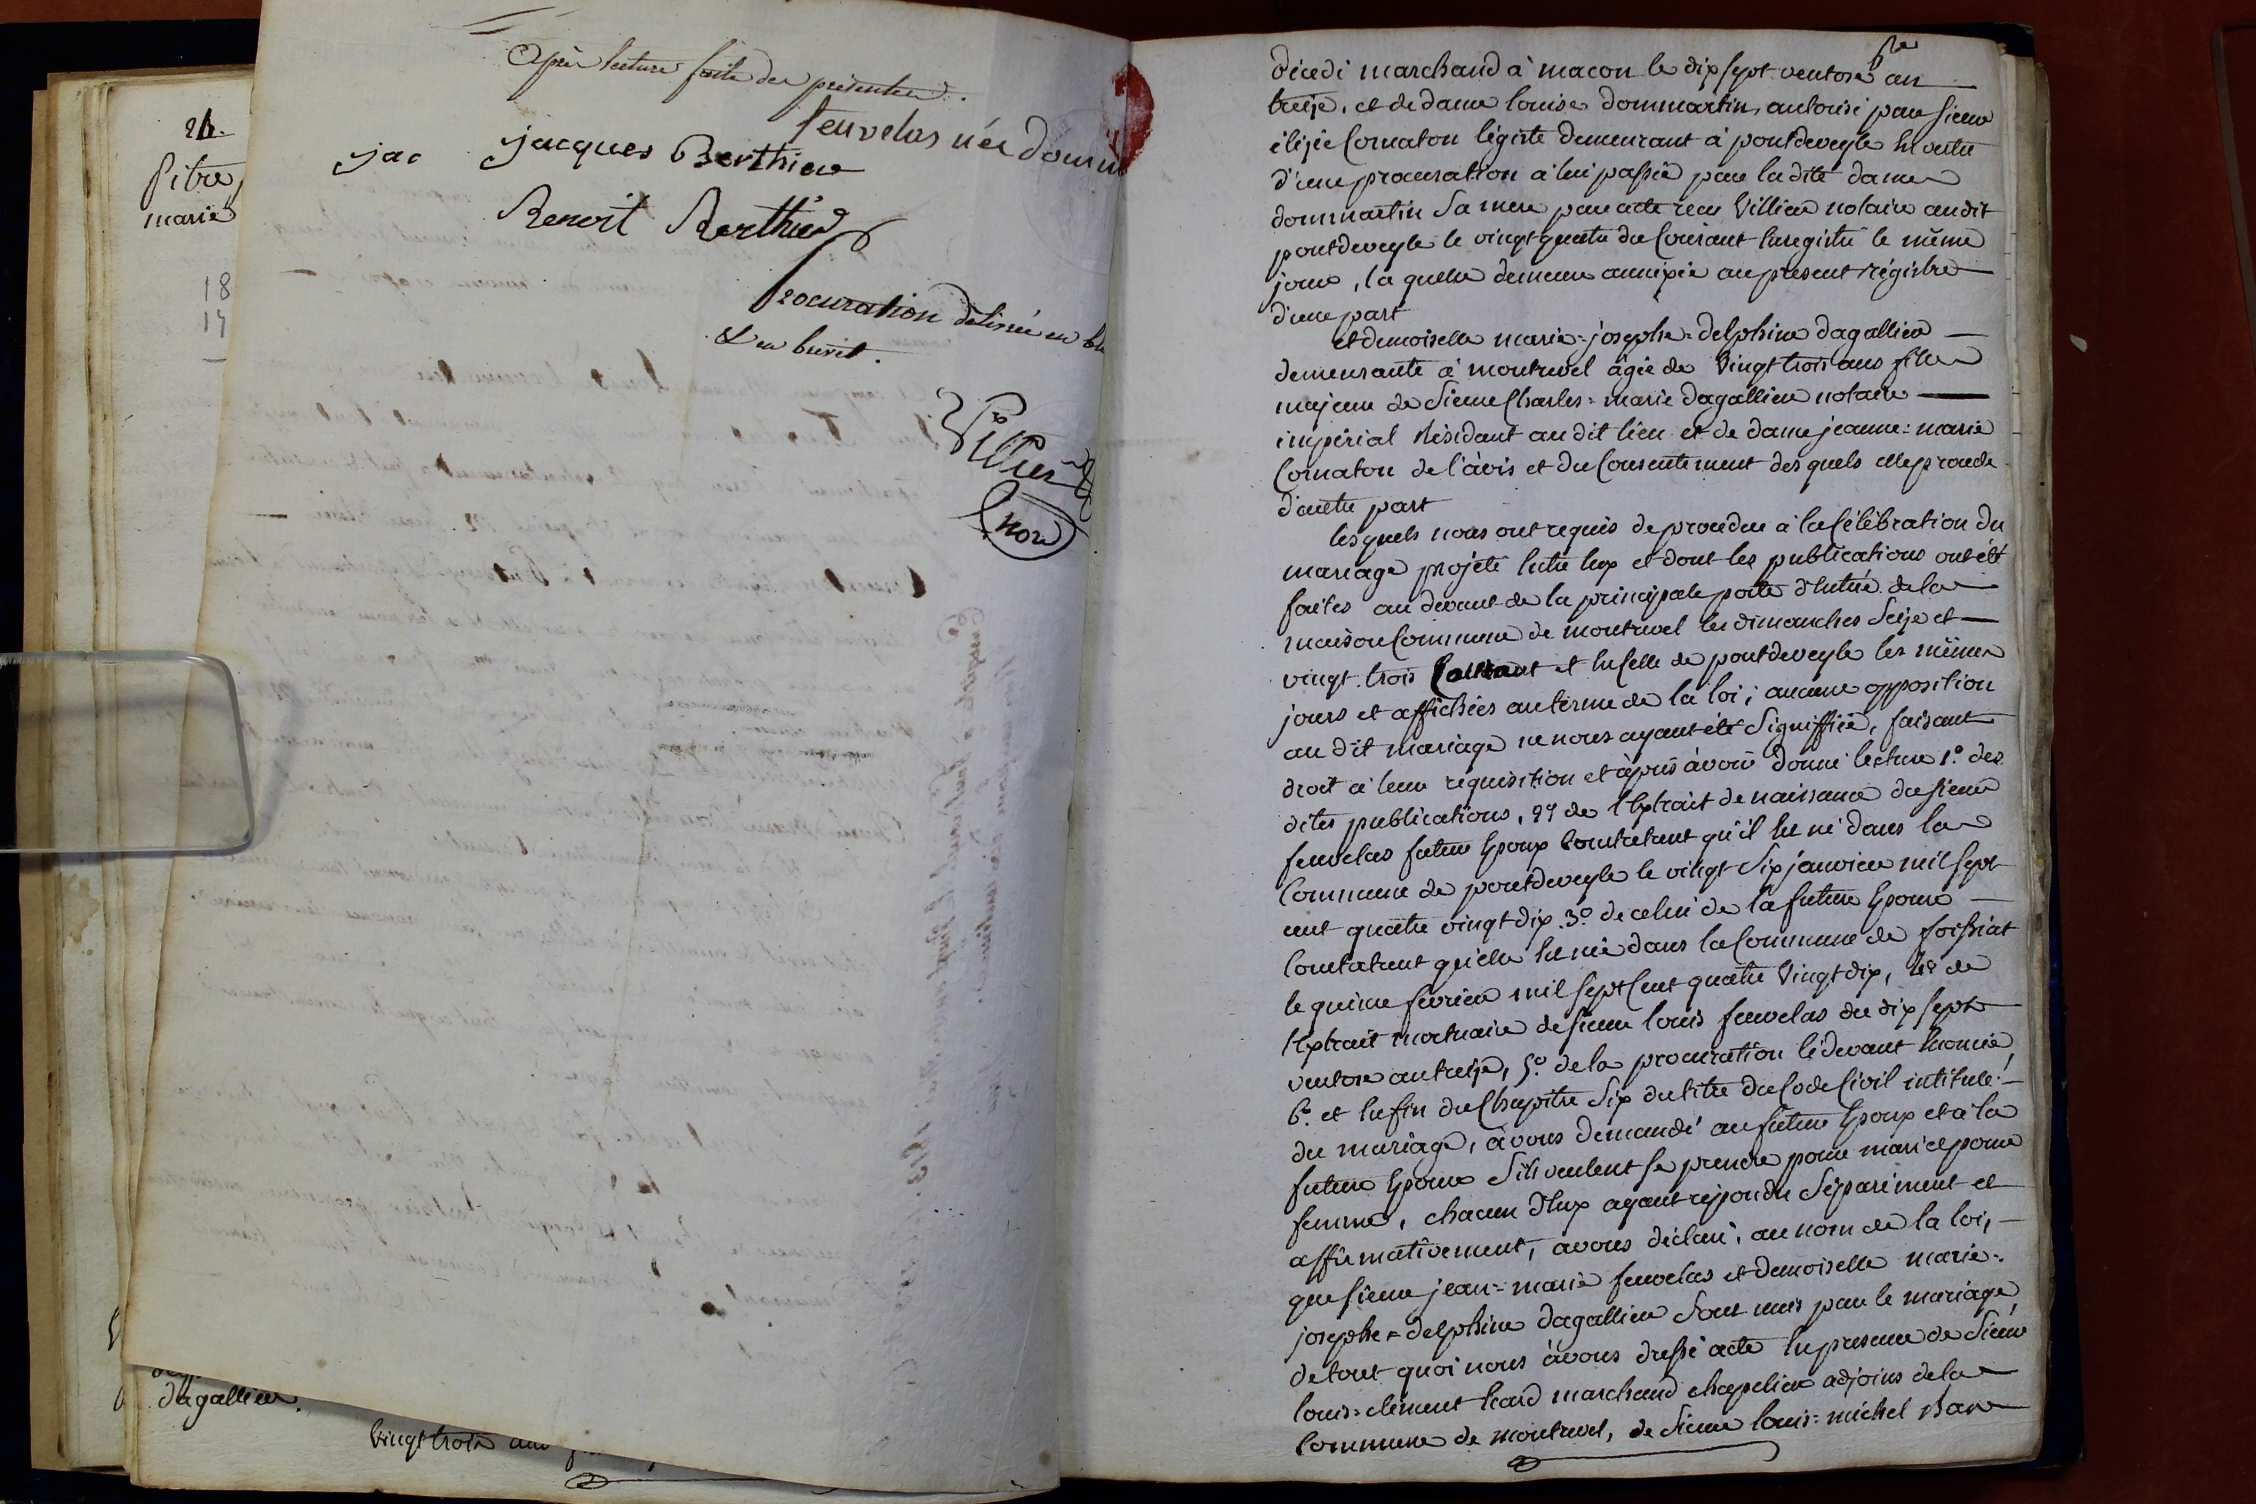 Après lecture faite des présentes.
feuvelas née domm
jac jacques Berthier
Benoit Berthier
Procuration délivrée en
& en brevet.
Villier
not
24.
pitre
marié
18
17
dagallier.
vingt trois ans
décédé marchand à macon le dix sept ventose an
treize, et de dame louise dommartin, autorisé par sieur
élizée Cornaton légiste demeurant à pontdeveyle En vertu
d'une procuration à lui passée par la dite dame
dommartin sa mere par acte recu Villier notaire au dit
pontdeveyle le vingt quatre du Courant Enregistré le même
jour, la quelle demeure annexée au présent régistre
d'une part
et demoiselle marie=josephe=delphine dagallier
demeurante à montrevel âgée de Vingt trois ans fille
majeure de Sieur Charles=marie dagallier notaire
impérial Résidant au dit lieu et de dame jeanne=marie
Cornaton de l'àvis et du Consentement des quels elle procede
d'autre part
lesquels nous ont requis de proceder à la Célébration du
mariage projété Entre Eux et dont les publications ont été
faites au devant de la principale porte d'Entrée de la
maison Commune de montrevel les dimanches Seize et
vingt trois Courant et En Celle de pontdeveyle les mêmes
jours et affichées au terme de la loi; aucune opposition
au dit mariage ne nous ayant été Signiffiée, faisant
droit à leur réquisition et àprès àvoir donné lecture 1º. des
dites publications, 2º de l'Extrait de naissance du sieur
feuvelas futur Epoux Constatant qu'il Est né dans la
Commune de pontdeveyle le vingt Six janvier mil sept
cent quatre vingt dix. 3º. de celui de la future Epouse
Constatant qu'elle Est née dans la Commune de foissiat
le quinze fevrier mil sept Cent quatre Vingt dix, 4º de
l'Extrait mortuaire de sieur louis feuvelas du dix sept
ventose an treize, 5º. de la procuration Cidevant Enoncée,
6º. et Enfin du Chapitre Six du titre du Code Civil intitulé
du mariage, àvons demandé au futur Epoux et à la
future Epouse S'ils veulent se prendre pour mari et pour
femme, chacun d'Eux ayant répondu Séparément et
affirmativement, avons déclaré, au nom de la loi,
que sieur jean=marie feuvelas et demoiselle marie=
josephe=delphine dagallier Sont unis par le mariage
de tout quoi nous àvons dressé acte En presence de Sieur
louis=clément marchand chapelier adjoint de la
Commune de montrevel, de Sieur louis=michel